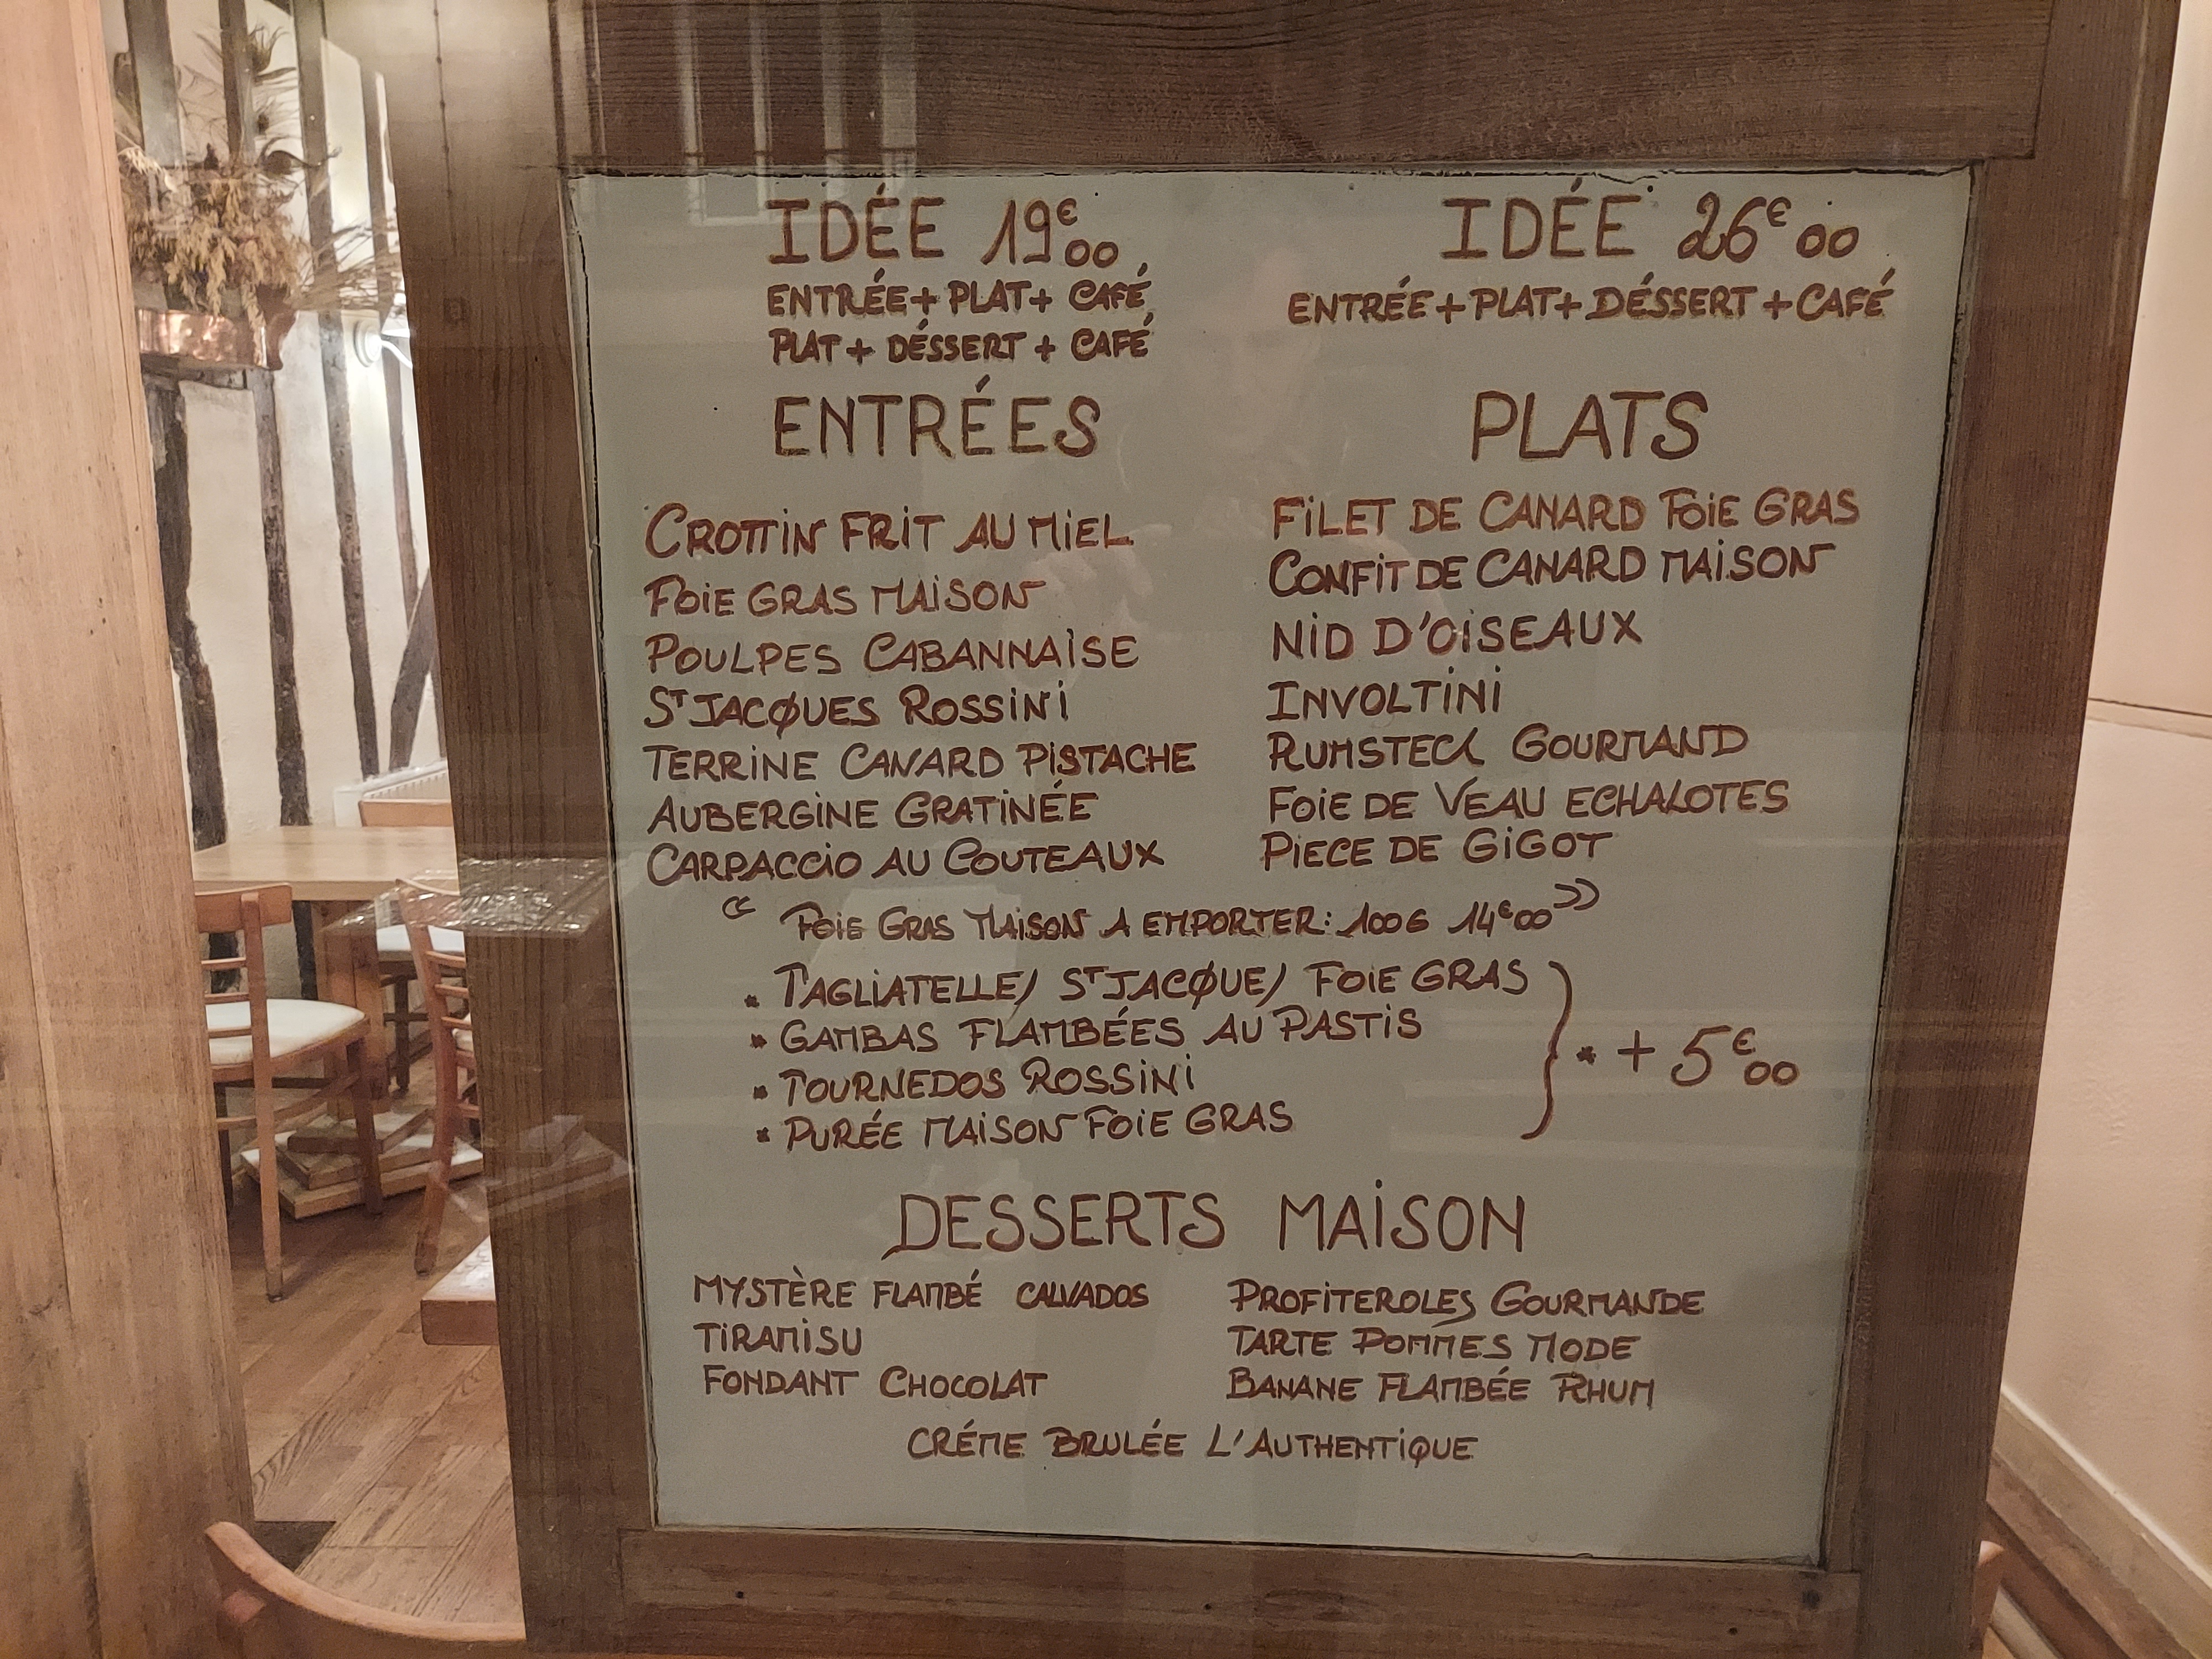 IDÉE 19€00
ENTRÉE + PLAT + CAFÉ
PLAT + DÉSSERT + CAFÉ
IDÉE 26€00
ENTRÉE + PLAT + DÉSSERT + CAFÉ
ENTRÉES
CROTTIN FRIT AU MIEL
FOIE GRAS MAISON
POULPES CABANNAISE
ST JACQUES ROSSINI
TERRINE CANARD PISTACHE
AUBERGINE GRATINÉE
CARPACCIO AU COUTEAUX
PLATS
FILET DE CANARD FOIE GRAS
CONFIT DE CANARD MAISON
NID D'OISEAUX
INVOLTINI
RUMSTECK GOURMAND
FOIE DE VEAU ECHALOTES
PIECE DE GIGOT
« FOIE GRAS MAISON A EMPORTER : 100G 14€00 »
* TAGLIATELLE / ST JACQUE / FOIE GRAS
* GAMBAS FLAMBÉES AU PASTIS
* TOURNEDOS ROSSINI
* PURÉE MAISON FOIE GRAS
} * + 5€00
DESSERTS MAISON
MYSTÈRE FLAMBÉ CALVADOS
TIRAMISU
FONDANT CHOCOLAT
PROFITEROLES GOURMANDE
TARTE POMMES MODE
BANANE FLAMBÉE RHUM
CRÉME BRULÉE L'AUTHENTIQUE